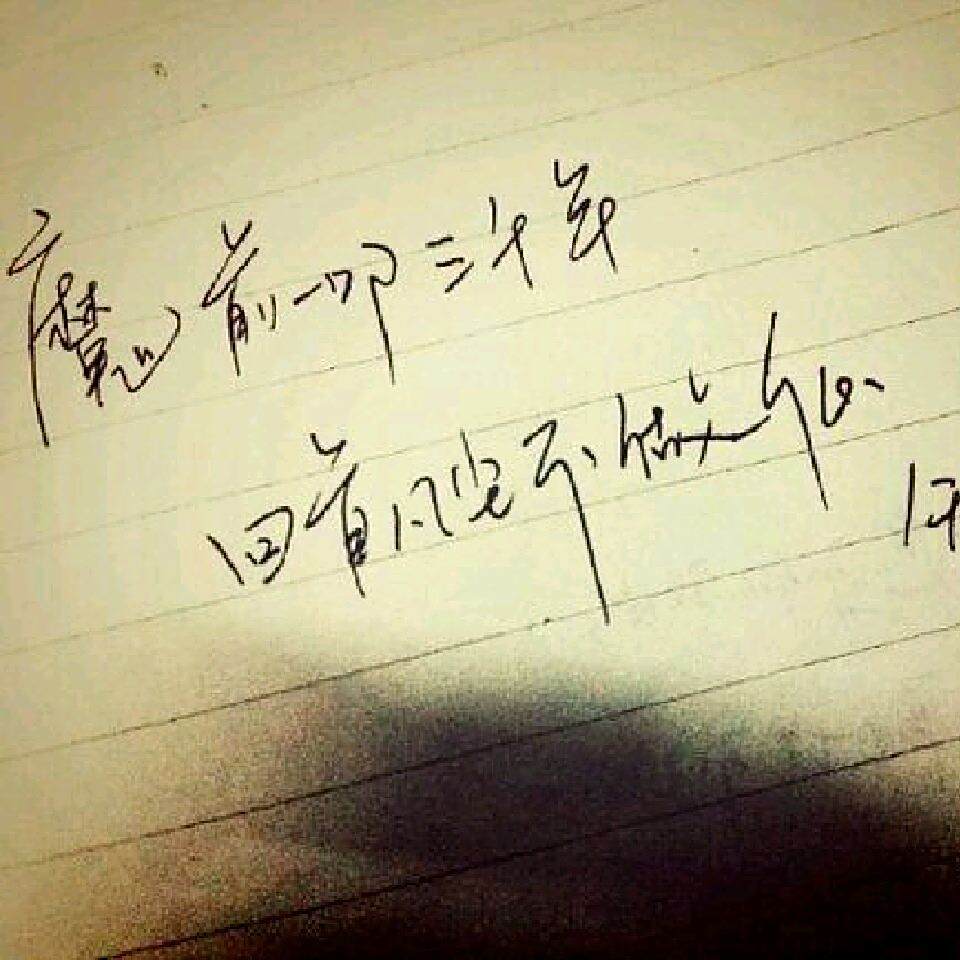 魔前一叩三千年
回首凡尘不做仙